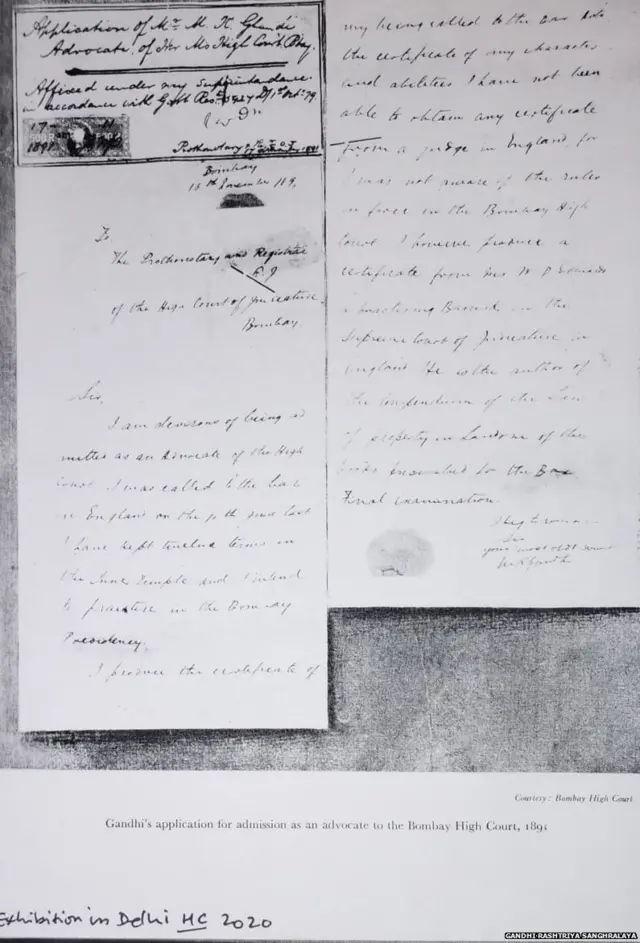 Application of Mr. M. K. Ghandi
Advocate, of Her Ms High Court Bbay.
Affixed under my Superintendance
in accordance with Govt Reso
17
1891
Prothonotary
Bombay
To
The Prothonotary and Registrar
of the High Court of Judicature
Bombay.
Sir,
I am desirous of being ad
mitted as an Advocate of the High
Court. I was called to the bar
in England on the 10th June last
I have kept twelve terms in
the Inner Temple and I intend
to practise in the Bombay
Presidency.
I produce the certificate of
my being called to the bar
the certificate of my character
and abilities I have not been
able to obtain any certificate
from a judge in England, for
I was not aware of the rules
in force in the Bombay High
Court. I however produce a
certificate from Mr W D Edwards
a practising Barrister in the
Supreme Court of Judicature in
England. He is the author of
the Compendium of the Law
of property in Land one of the
books prescribed for the Bar
Final examination.
I beg to remain
Sir
your most obdt
Courtesy: Bombay High Court
Gandhi's application for admission as an advocate to the Bombay High Court, 1891
Exhibition in Delhi HC 2020
GANDHI RASHTRIYA SANGHRALAYA